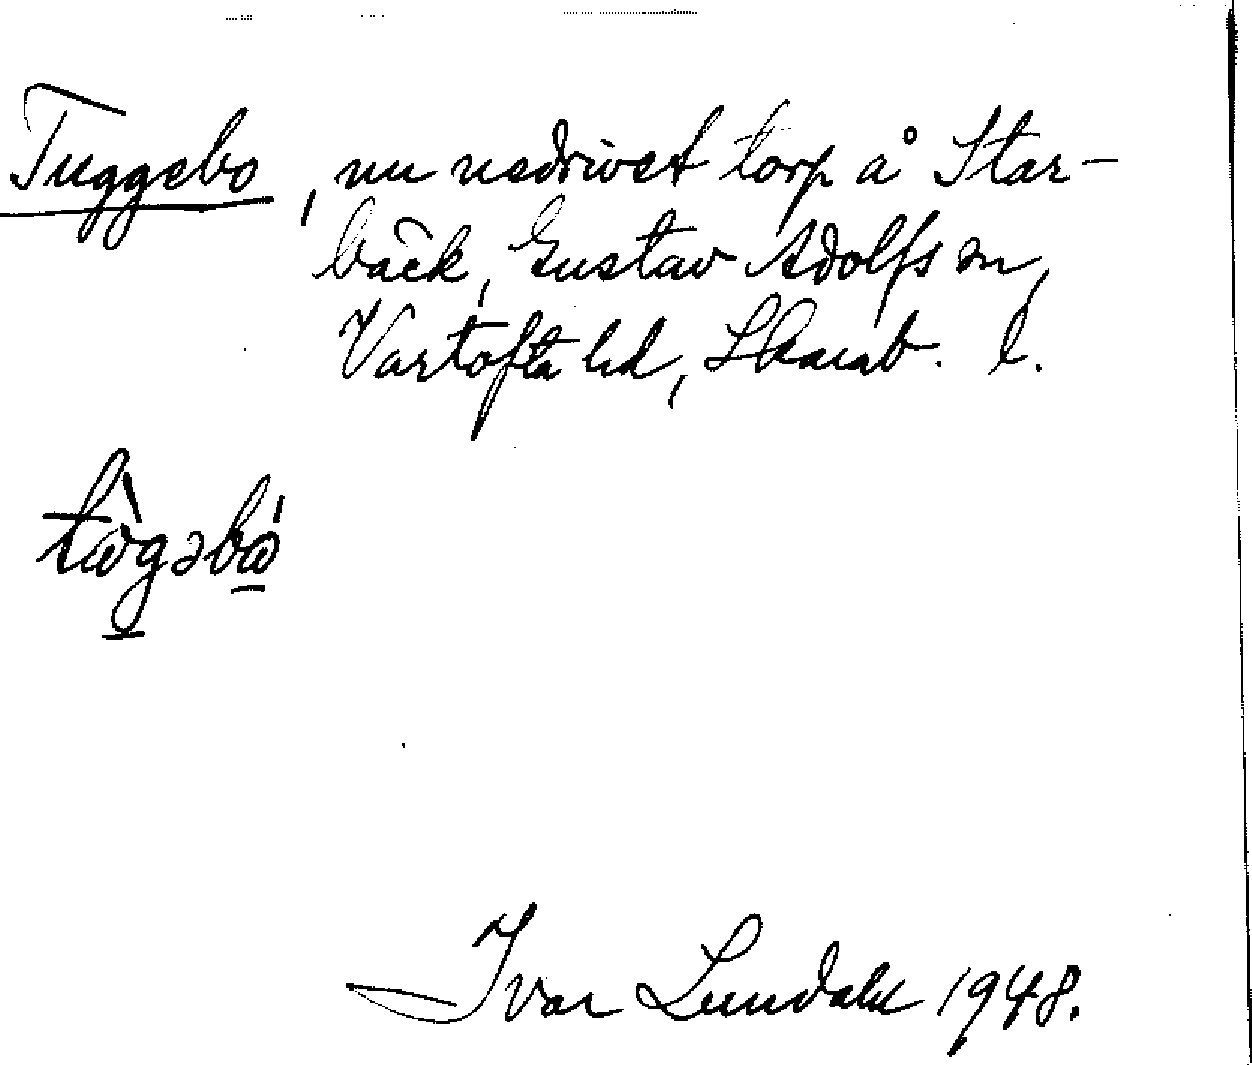 Tuggebo, nu nedrivet torp å Star-
bäck, Gustav Adolfs sn,
Vartofta hd, Skarab. l.
tωgəbω
Ivar Lundahl 1948.